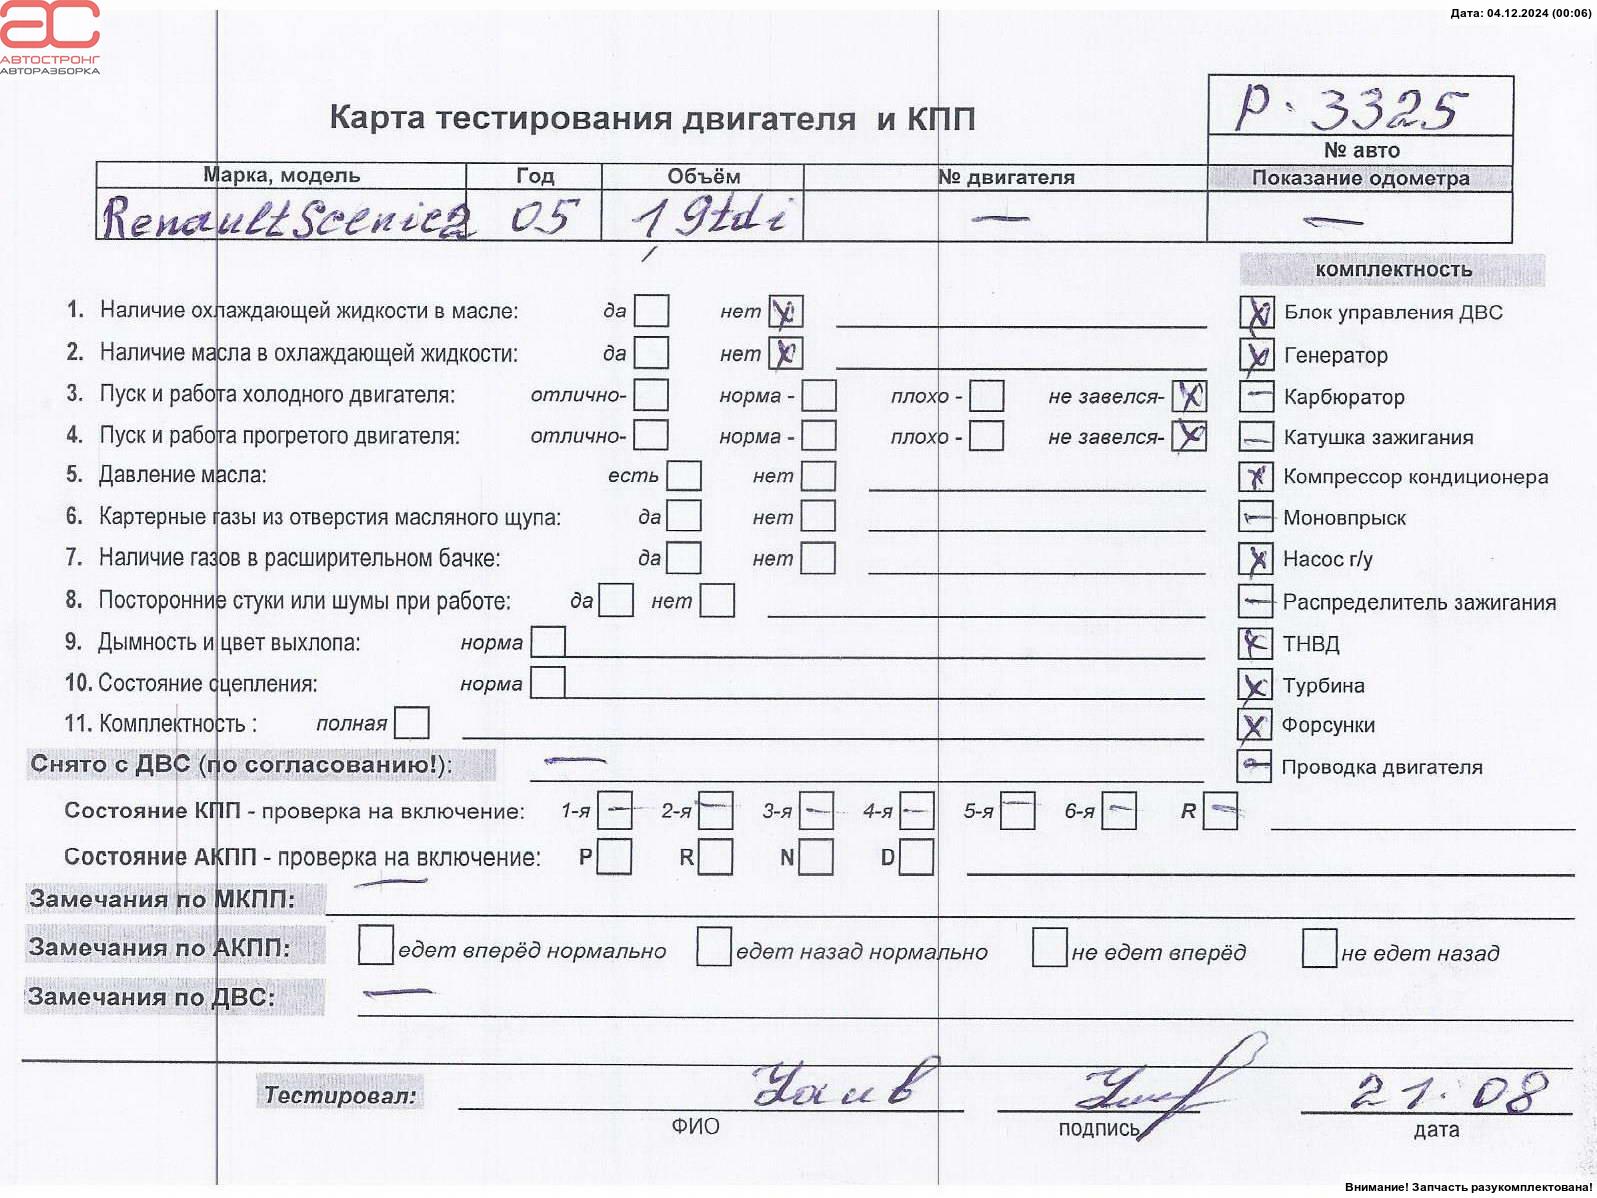 Дата: 04.12.2024 (00:06)
АВТОСТРОНГ
АВТОРАЗБОРКА
Карта тестирования двигателя и КПП
Р. 3325
№ авто
Марка, модель Год Объём № двигателя Показание одометра
Renault Scenic2 05 1,9tdi — —
комплектность
1. Наличие охлаждающей жидкости в масле: да нет
2. Наличие масла в охлаждающей жидкости: да нет
3. Пуск и работа холодного двигателя: отлично- норма - плохо - не завелся-
4. Пуск и работа прогретого двигателя: отлично- норма - плохо - не завелся-
5. Давление масла: есть нет
6. Картерные газы из отверстия масляного щупа: да нет
7. Наличие газов в расширительном бачке: да нет
8. Посторонние стуки или шумы при работе: да нет
9. Дымность и цвет выхлопа: норма
10. Состояние сцепления: норма
11. Комплектность : полная
Блок управления ДВС
Генератор
Карбюратор
Катушка зажигания
Компрессор кондиционера
Моновпрыск
Насос г/у
Распределитель зажигания
ТНВД
Турбина
Форсунки
Проводка двигателя
Снято с ДВС (по согласованию!): —
Состояние КПП - проверка на включение: 1-я 2-я 3-я 4-я 5-я 6-я R
Состояние АКПП - проверка на включение: P R N D
Замечания по МКПП: —
Замечания по АКПП: едет вперёд нормально едет назад нормально не едет вперёд не едет назад
Замечания по ДВС: —
Тестировал: 21.08
ФИО подпись дата
Внимание! Запчасть разукомплектована!